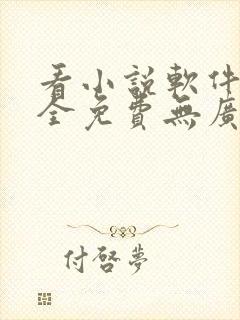 看小說軟件
全免費無廣
付啓夢